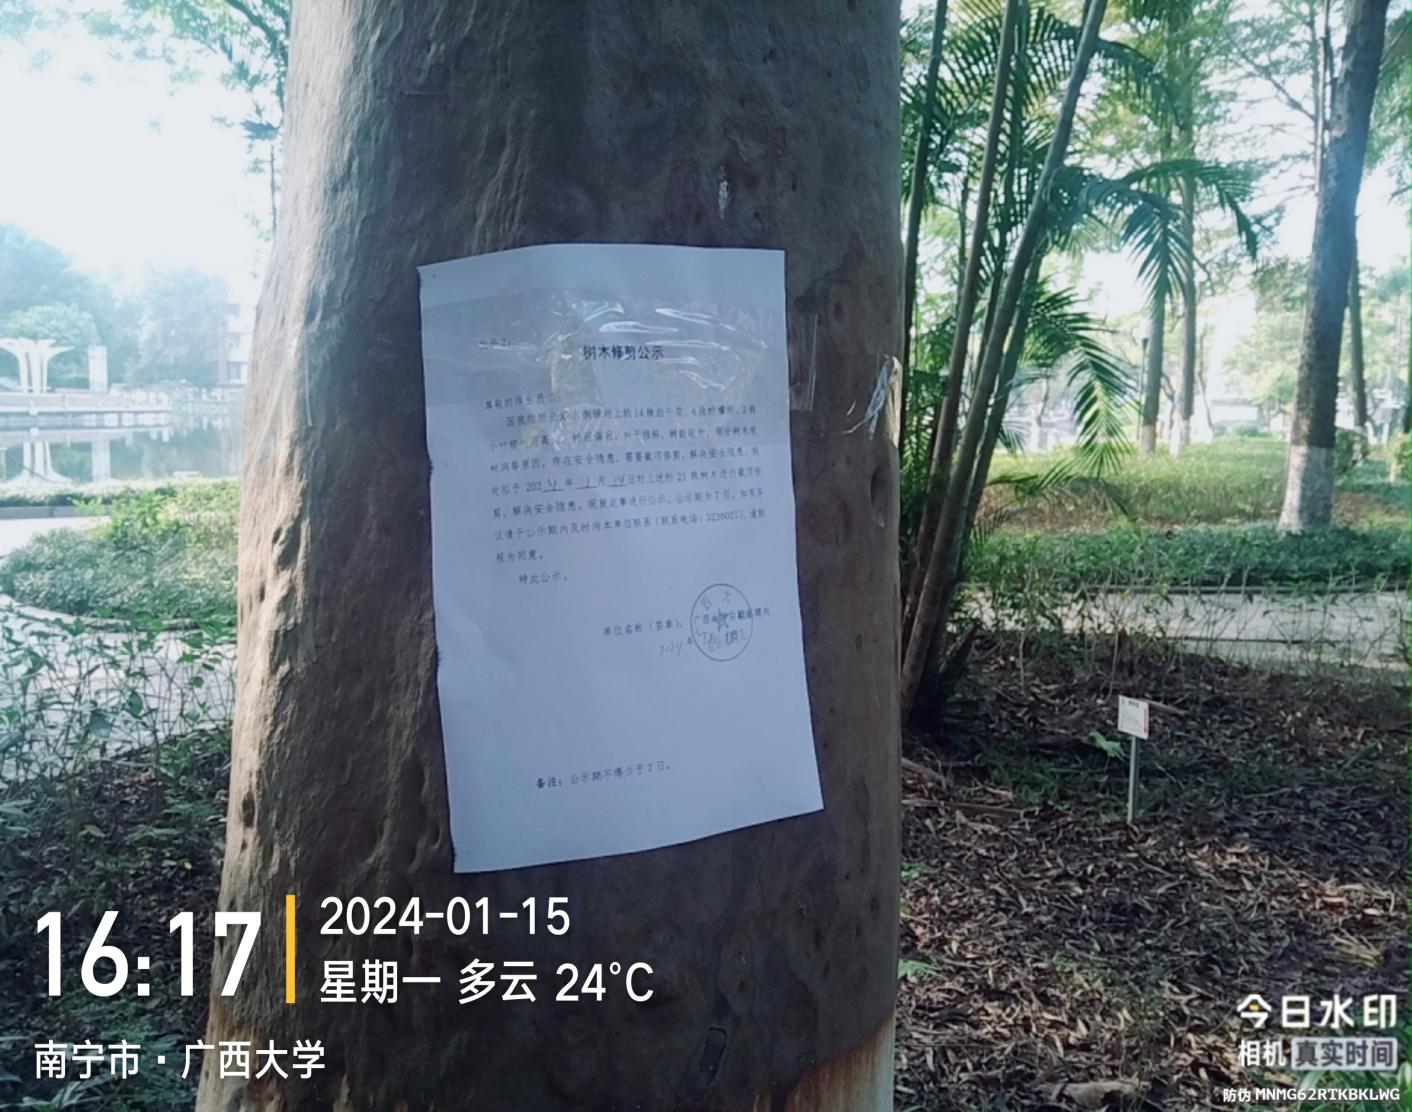 树木修剪公示
尊敬的师生员工:
侧绿地上的14株白千层、4株柠檬桉、3株
树冠偏冠、树干倾斜、树龄较大、部分树木有
树洞等原因,存在安全隐患,需要截顶修剪,解决安全隐患。我
处拟于2024年1月 日对上述的21株树木进行截顶修
剪,解决安全隐患。现就此事进行公示,公示期为7日,如有异
议请于公示期内及时向本单位联系(联系电话:3236027),逾期
视为同意。
特此公示。
单位名称(签章):广西大学后勤基建处
2024年
备注:公示期不得少于7日。
16:17
2024-01-15
星期一 多云 24°C
南宁市·广西大学
今日水印
相机 真实时间
防伪 MNMG62RTKBKLWG